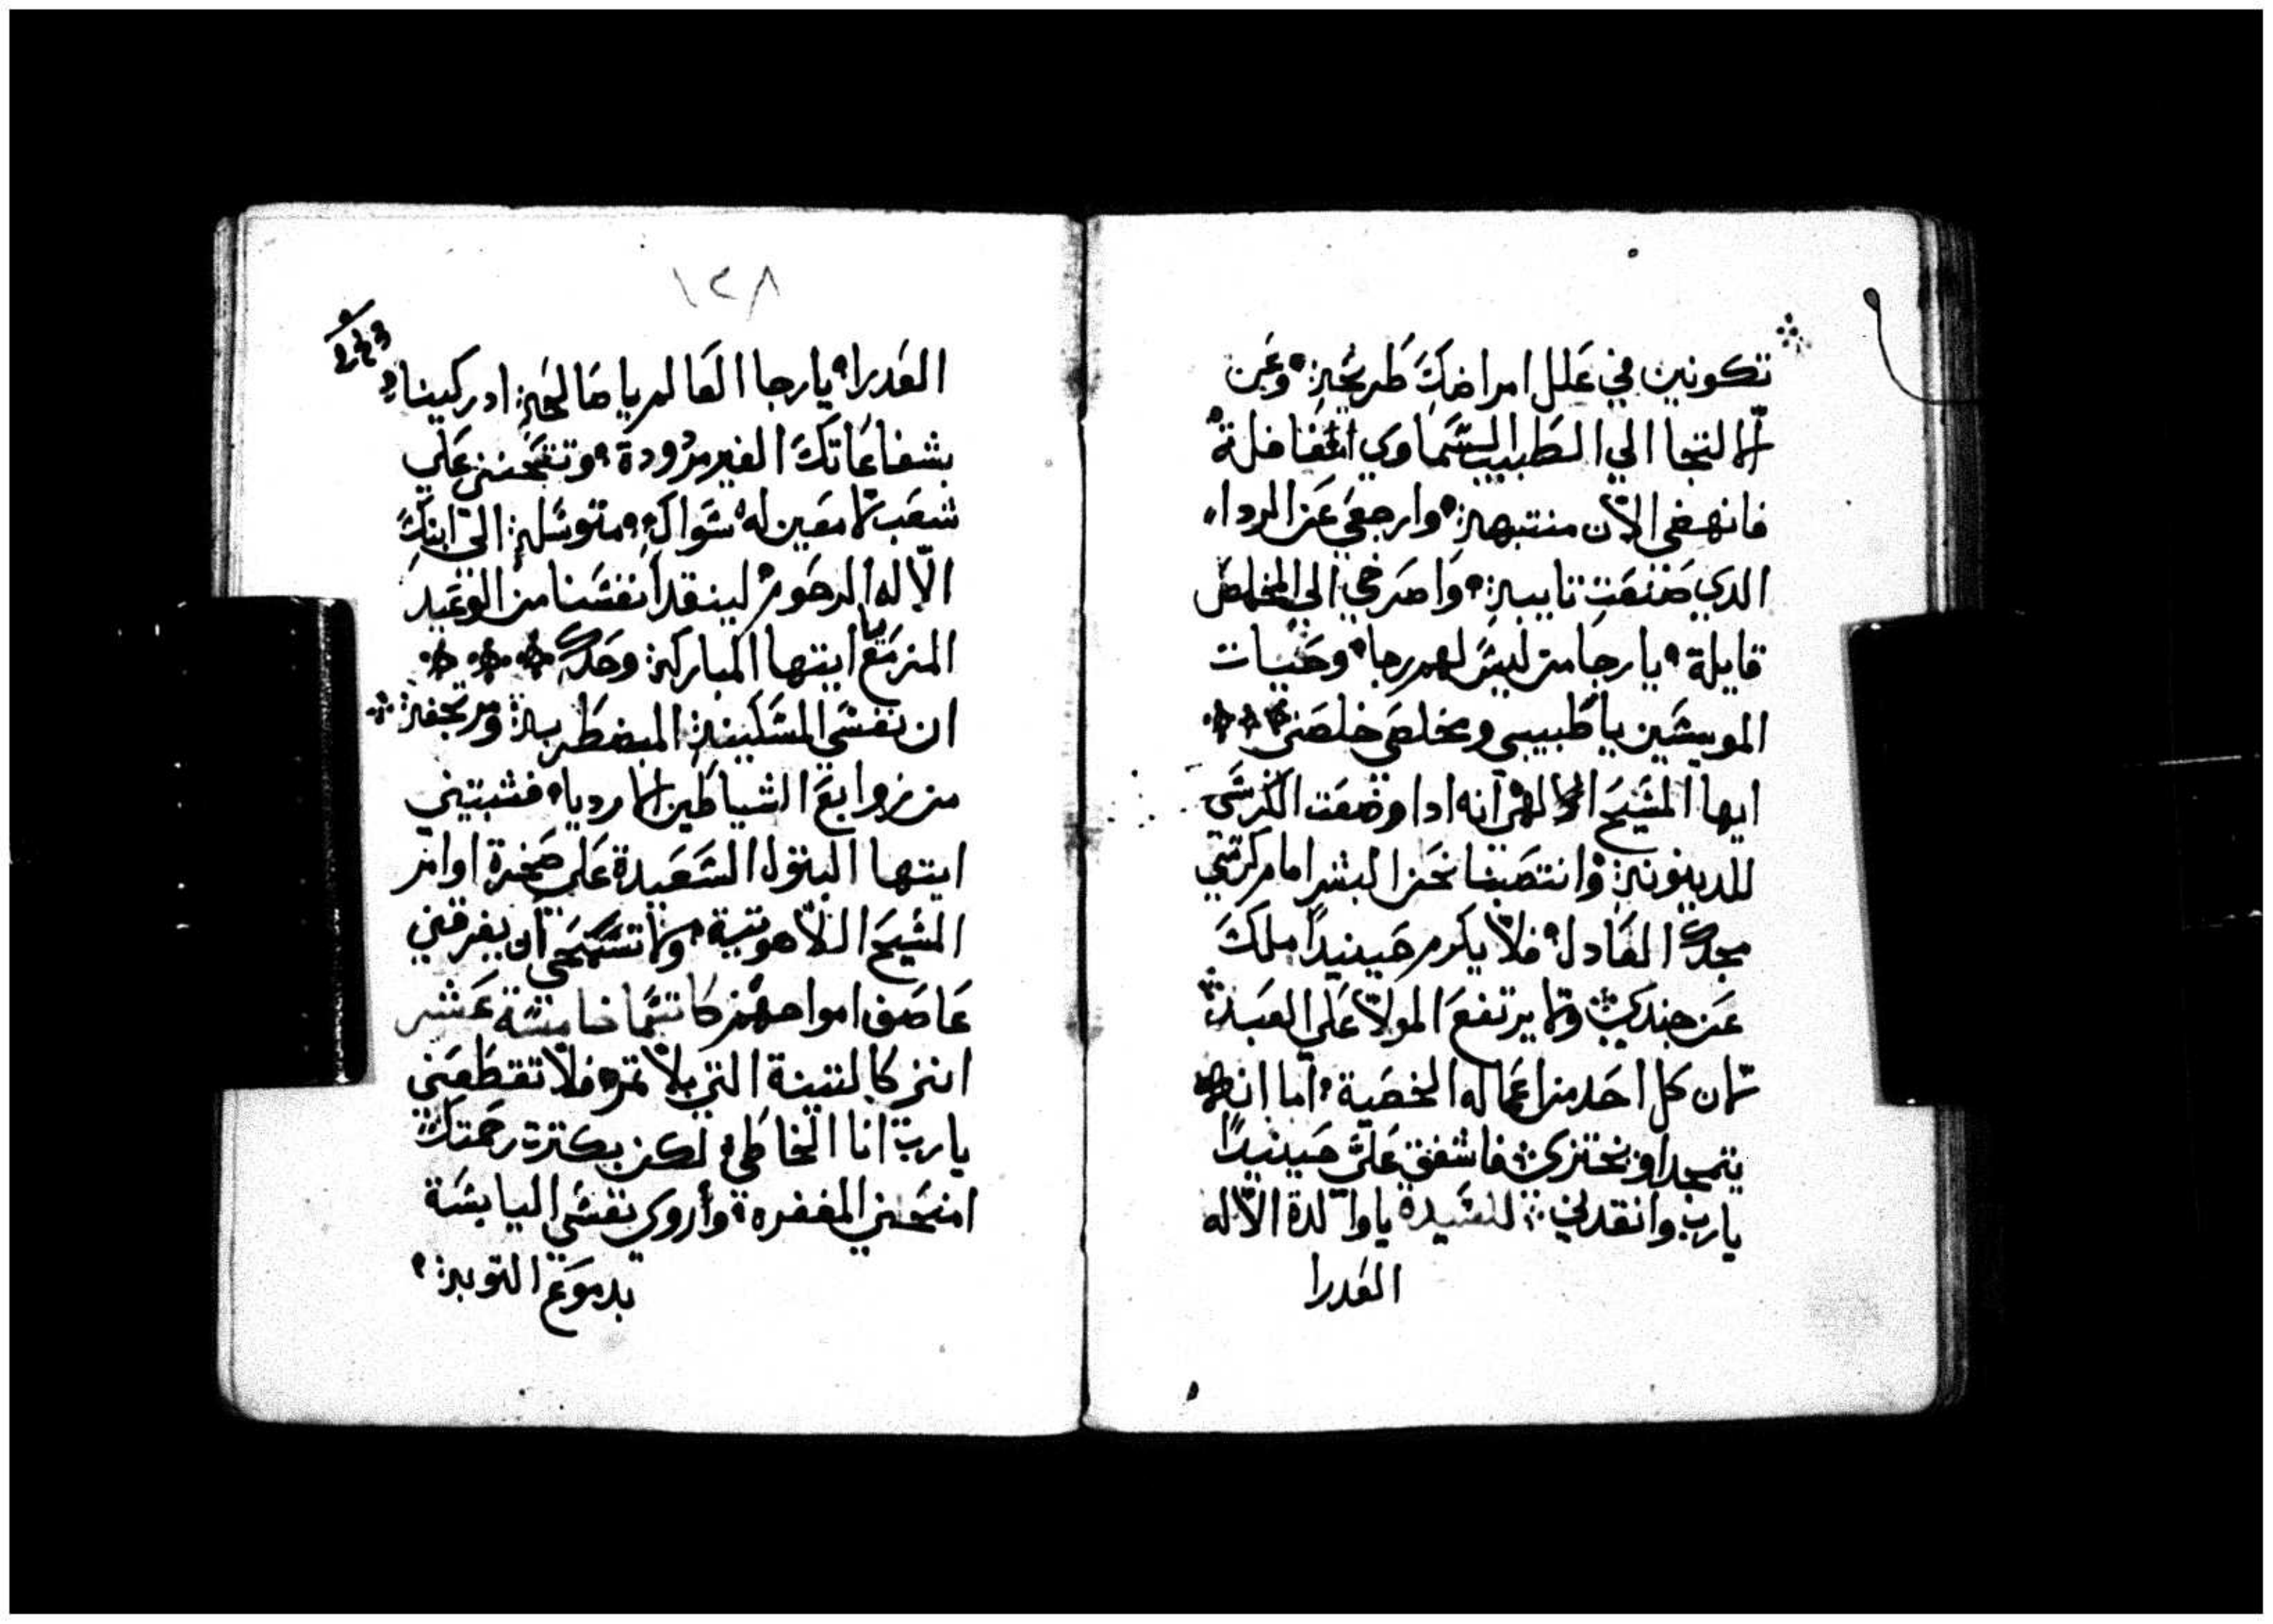 تكونين في علل امراضك طريحة وعن
الالتجا الي الطبيب السماوي متغافلة
فانهضي الآن منتبهة وارجعي عن الردا
الدي صنعت تايبة واصرخي الي المخلص
قايلة يا رجا من ليس لهم رجا وحيات
المويسين يا طبيبي ومخلصي خلصني
ايها المسيح الالهي انه ادا وضعت الكرسي
للدينونة وانتصبنا نحن البشر امام كرسي
مجدك العادل فلا يكرم حينيدا ملك
عن جندي ولا يرتفع المولا علي العبد
لان كل احد من اعماله الخصية اما انه
يتمجد او يختزي فاشفق علي حينيدا
يا رب وانقدني للسيدة يا والدة الاله
العدرا
١٢٨
العدرا يا رجا العالم يا صالحة ادركينا
بشفاعاتك الغير مردودة وتتحنني علي
شعب لا معين له سواك متوسلة الي ابنك
الاله الرحوم لينقد انفسنا من الوعيد
المزمع ايتها المباركة وحدك
ان نفسي المسكينة المضطربة ومرتجفة
من زوابع الشياطين الارديا فثبتيني
ايتها البتول السعيدة علي صخرة اوامر
المسيح اللاهوتية ولا تسمحي ان يغرقني
عاصف امواجهم كاتسما خامسة عشر
انني كالتينة التي بلا تمره فلا تقطعني
يا رب انا الخاطي لكن بكترة رحمتك
امنحني المغفره وأروي نفسي اليابسة
بدموع التوبة